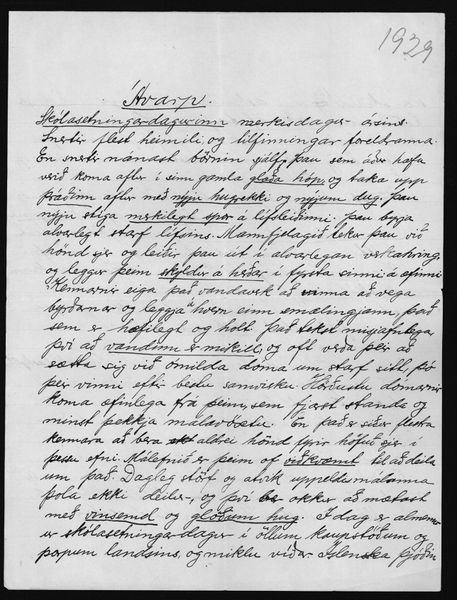 1929
Ávarp.
Skólasetningardagurinn merkisdagur ársins.
Snertir flest heimili, og tilfinningar foreldranna.
En snertir nánast börnin sjálf, þau sem áður hafa
verið koma aftur í sinn gamla glaða hóp, og taka upp
þráðinn aftur með nýju hugrekki og nýjum dug. þau
nýju stíga merkilegt spor á lífsleiðinni. þau byrja
alvarlegt starf lífsins. Mannfjelagið tekur þau við
hönd sjer og leiðir þau út í alvarlegan verkahring,
og leggur þeim skyldur á herðar í fyrsta sinni á æfinni
Kennarnir eiga það vandaverk að vinna að vega
byrðarnar og leggja á hvern einn smælingjann, það
sem er hæfilegt og holt það tekst misjafnlega
því að vandinn er mikill, og oft verða þeir að
sætta sig við ómilda dóma um starf sitt, þó
þeir vinni eftir bestu samvisku. Hörðustu dómarnir
koma æfinlega frá þeim, sem fjærst standa og
minst þekkja málavöxtu. En það er siður flestra
kennara að bera aldrei hönd fyrir höfuð sjer í
þessu efni. Málefnið er þeim of viðkvæmt til að deila
um það. Dagleg störf og atvik uppeldismálanna
þola ekki deilur, og því ber okkur að mætast
með vinsemd og glöðum hug. Í dag er
er skólasetningardagur í öllum kaupstöðum og
þorpum landsins, og miklu víðar. Íslenska þjóðin